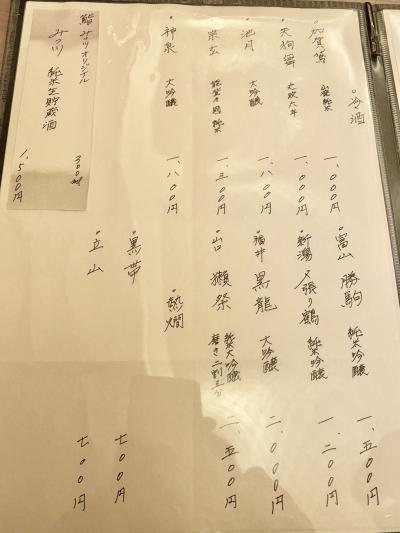 ○冷酒
・加賀鳶 山廃純米 一、〇〇〇円
・天狗舞 一、〇〇〇円
・池月 大吟醸 一、八〇〇円
・宗玄 純米 一、三〇〇円
・神泉 大吟醸 一、八〇〇円
・富山 勝駒 純米吟醸 一、五〇〇円
・新潟 〆張り鶴 純米吟醸 一、二〇〇円
・福井 黒龍 大吟醸 二、〇〇〇円
・山口 獺祭 純米大吟醸 磨き二割三分 二、五〇〇円
・熱燗
・黒帯 七〇〇円
・立山 七〇〇円
鮨 みつ川オリジナル
みつ川 純米生貯蔵酒
300ml
1,500円